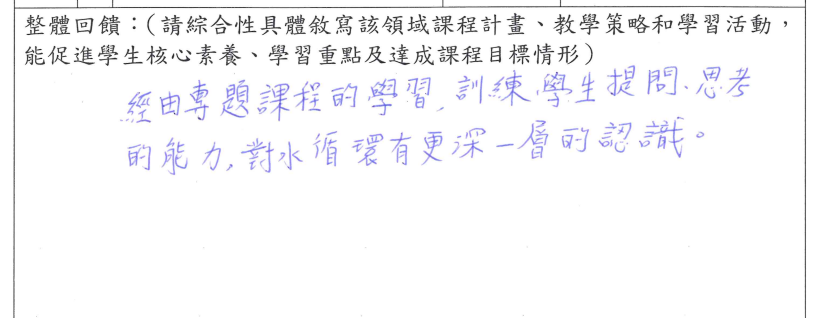 整體回饋：(請綜合性具體敘寫該領域課程計畫、教學策略和學習活動，
能促進學生核心素養、學習重點及達成課程目標情形)
經由專題課程的學習,訓練學生提問、思考
的能力,對水循環有更深一層的認識。